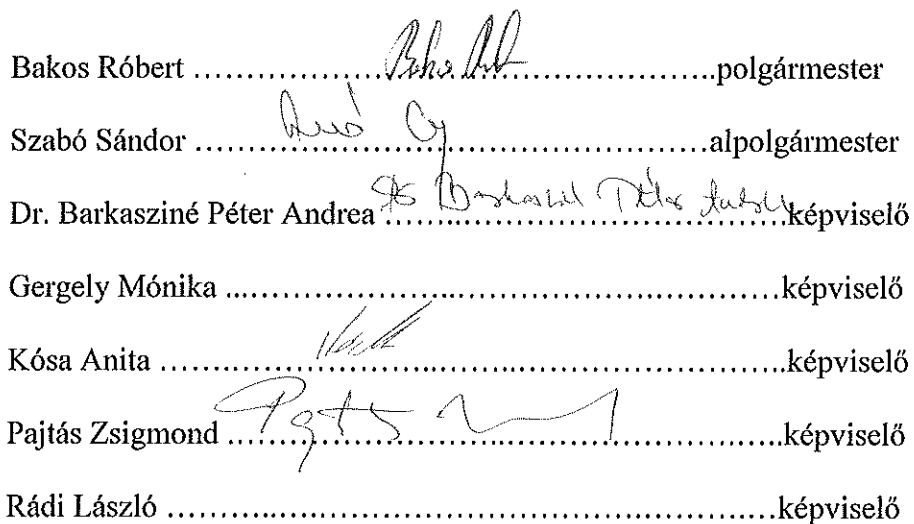 Bakos Róbert ........................................................polgármester
Szabó Sándor ........................................................alpolgármester
Dr. Barkasziné Péter Andrea........................................képviselő
Gergely Mónika ......................................................képviselő
Kósa Anita ............................................................képviselő
Pajtás Zsigmond ......................................................képviselő
Rádi László ...........................................................képviselő